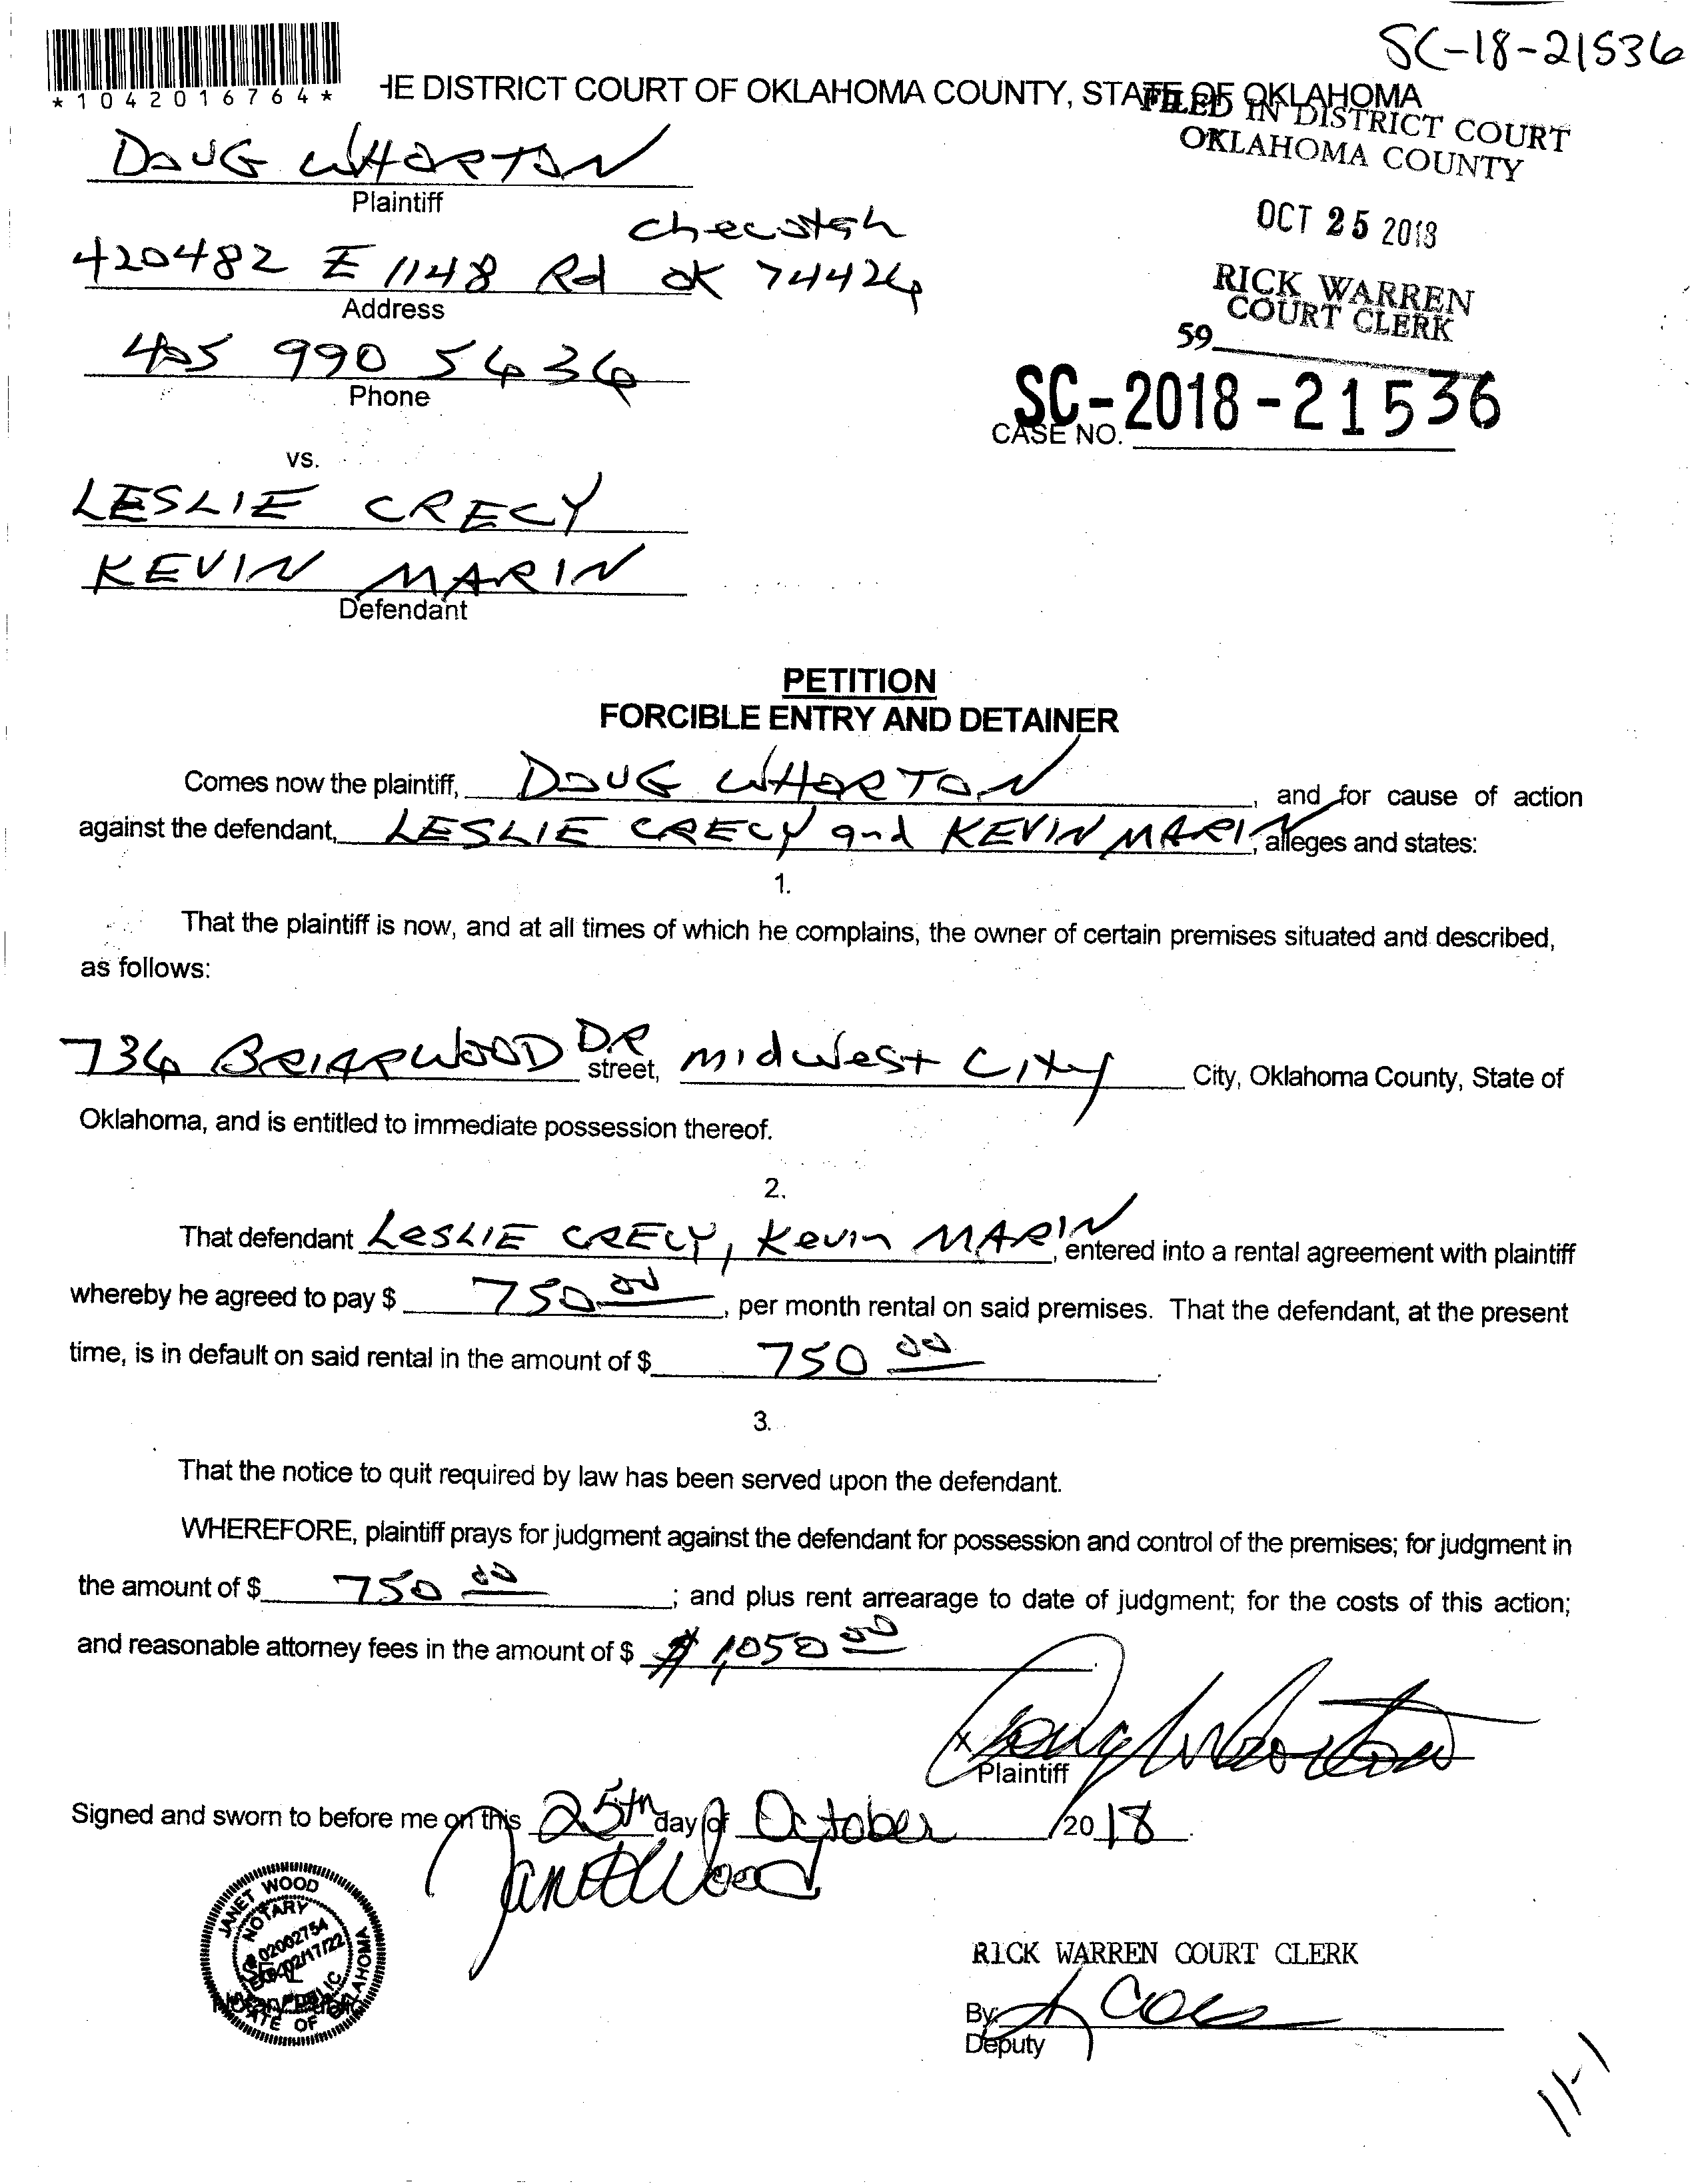 SC-18-21536
*1042016764*
HE DISTRICT COURT OF OKLAHOMA COUNTY, STATE OF OKLAHOMA
FILED IN DISTRICT COURT
OKLAHOMA COUNTY
DOUG WHORTON
Plaintiff
OCT 25 2018
checotah
420482 E 1148 Rd OK 74426
Address
RICK WARREN
COURT CLERK
59
405 990 5636
Phone
SC-2018-21536
CASE NO.
vs.
LESLIE CRECY
KEVIN MARIN
Defendant
PETITION
FORCIBLE ENTRY AND DETAINER
Comes now the plaintiff, DOUG WHORTON, and for cause of action
against the defendant, LESLIE CRECY and KEVIN MARIN, alleges and states:
1.
That the plaintiff is now, and at all times of which he complains, the owner of certain premises situated and described,
as follows:
736 BRIARWOOD DR street, midwest City City, Oklahoma County, State of
Oklahoma, and is entitled to immediate possession thereof.
2.
That defendant LeSLIE CRECY, Kevin MARIN, entered into a rental agreement with plaintiff
whereby he agreed to pay $ 750 00, per month rental on said premises. That the defendant, at the present
time, is in default on said rental in the amount of $ 750 00.
3.
That the notice to quit required by law has been served upon the defendant.
WHEREFORE, plaintiff prays for judgment against the defendant for possession and control of the premises; for judgment in
the amount of $ 750 00; and plus rent arrearage to date of judgment; for the costs of this action;
and reasonable attorney fees in the amount of $ $ 1,050 00.
x Doug Whorton
Plaintiff
Signed and sworn to before me on this 25th day of October 2018.
Janet Wood
JANET WOOD
NOTARY
# 02002754
EXP. 02/17/22
SEAL
Notary Public
PUBLIC
STATE OF OKLAHOMA
RICK WARREN COURT CLERK
By:
Deputy
11-1